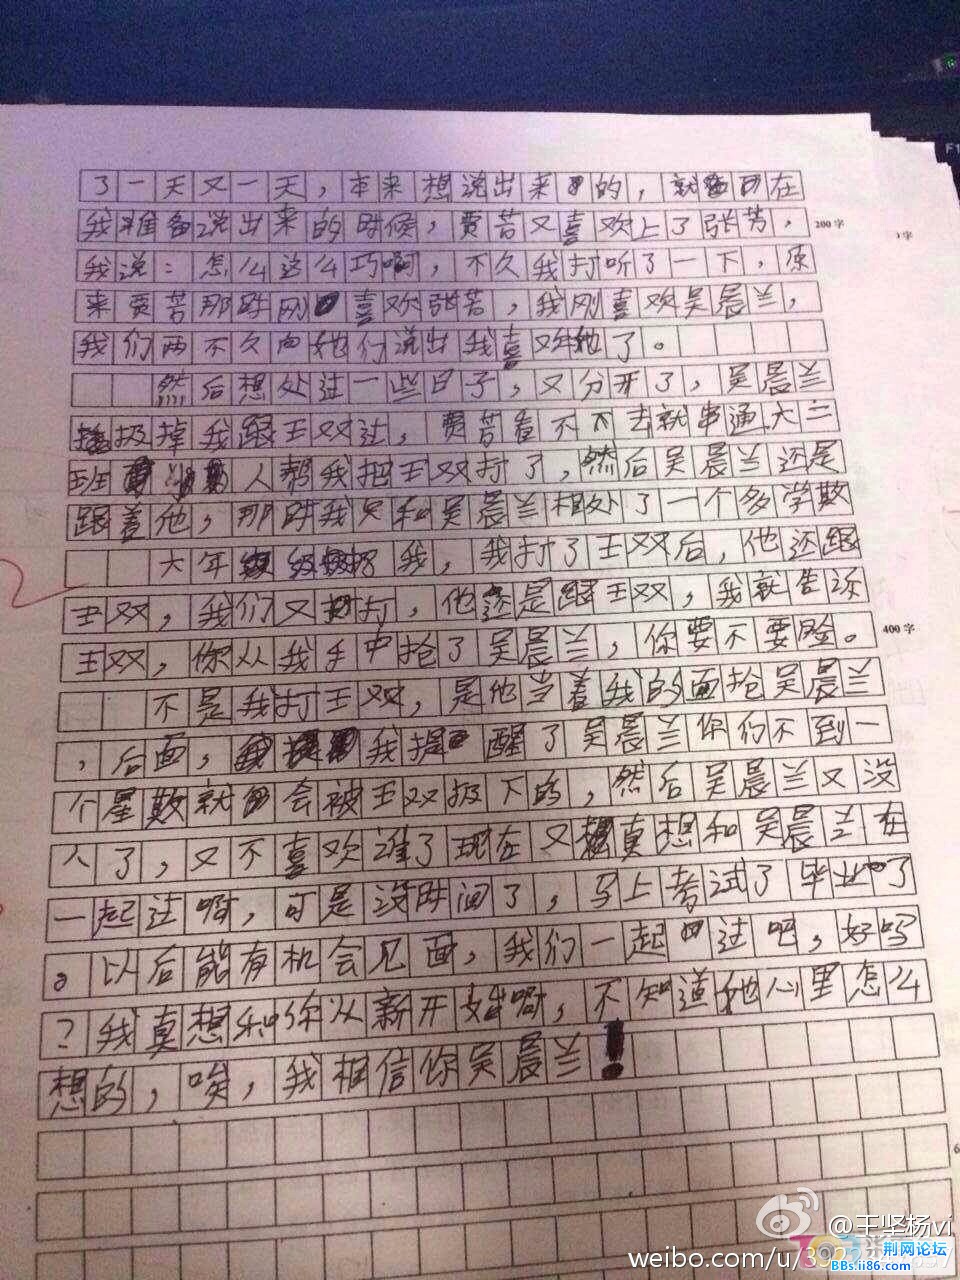 了一天又一天，本来想说出来的，就在
我准备说出来的时候，贾苦又喜欢上了张芳，
200字
我说：怎么这么巧啊，不久我打听了一下，原
来贾苦那时刚喜欢张苦，我刚喜欢吴晨兰，
我们两不久向她们说出我喜欢她了。
然后想处过一些日子，又分开了，吴晨兰
扱掉我跟王双过，贾苦看不下去就串通大二
班人帮我把王双打了，然后吴晨兰还是
跟着他，那时我只和吴晨兰相处了一个多学数
大年我，我打了王双后，他还跟
王双，我们又打，他还是跟王双，我就告诉
王双，你从我手中抢了吴晨兰，你要不要脸。
400字
不是我打王双，是他当着我的面抢吴晨兰
，后面，我提醒了吴晨兰你们不到一
个星数就会被王双扱下的，然后吴晨兰又没
人了，又不喜欢谁了现在又真想和吴晨兰在
一起过啊，可是没时间了，马上考试了毕业了
。以后能有机会见面，我们一起过吧，好吗
？我真想和你从新开始啊，不知道她心里怎么
想的，唉，我相信你吴晨兰！
@王坚杨vi
weibo.com/u/392
荆网论坛
BBs.li86.com